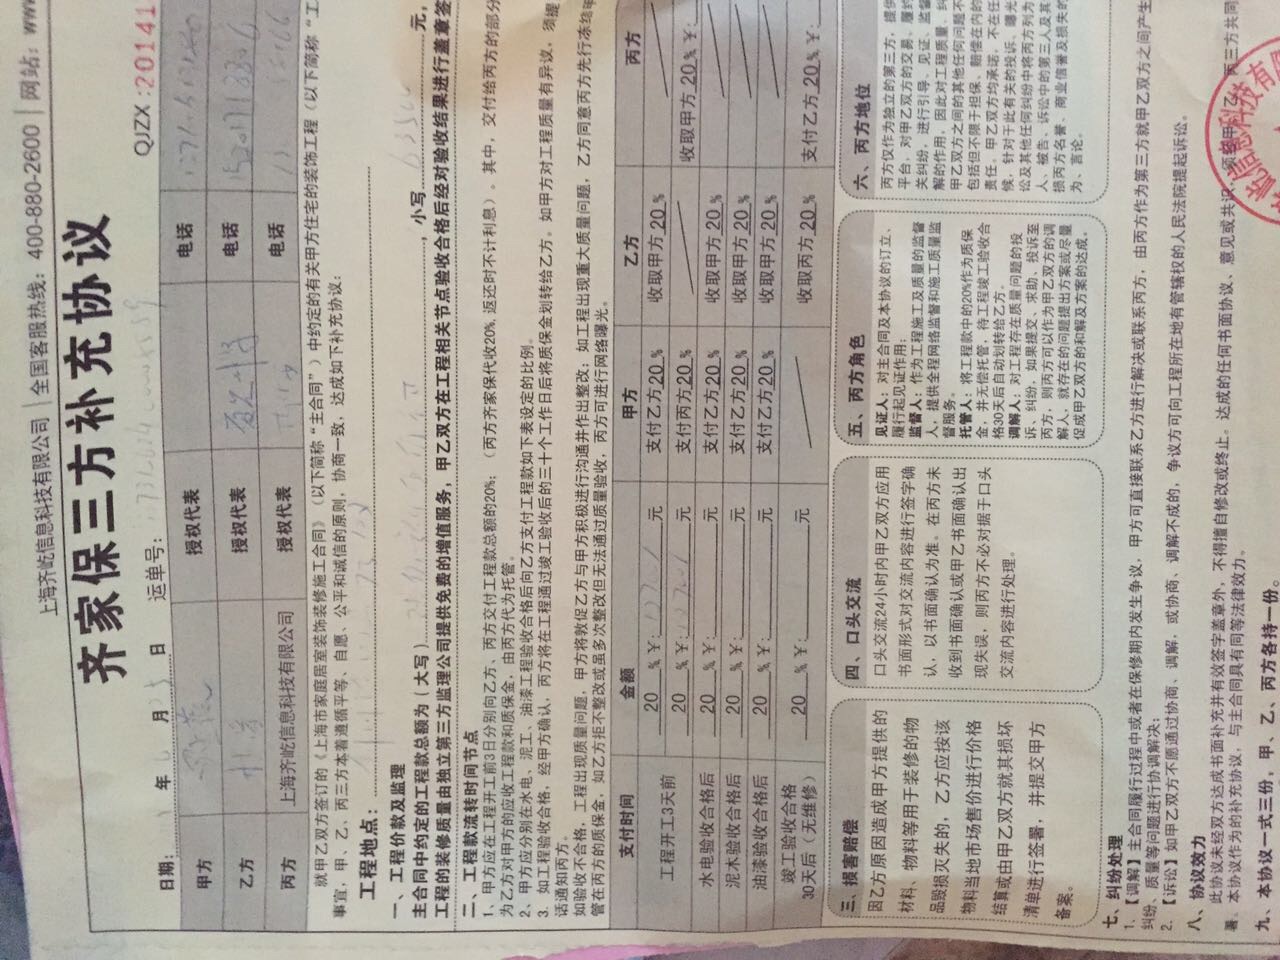 上海齐屹信息科技有限公司 | 全国客服热线：400-880-2600 | 网站：ww
齐家保三方补充协议
QJZX：20141
日期： 年 月 日 运单号：
甲方 授权代表 电话
乙方 授权代表 电话
丙方 上海齐屹信息科技有限公司 授权代表 电话
就甲乙双方签订的《上海市家庭居室装饰装修施工合同》（以下简称“主合同”）中约定的有关甲方住宅的装饰工程（以下简称“工
事宜，甲、乙、丙三方本着遵循平等、自愿、公平和诚信的原则，协商一致，达成如下补充协议：
工程地点：
一、工程价款及监理
主合同中约定的工程款总额为（大写） ，小写 元，
工程的装修质量由独立第三方监理公司提供免费的增值服务，甲乙双方在工程相关节点验收合格后经对验收结果进行盖章签
二、工程款流转时间节点
1、甲方应在工程开工前3日分别向乙方、丙方交付工程款总额的20%；（丙方齐家保代收20%，返还时不计利息）。其中，交付给丙方的部分
为乙方对甲方的应收工程款和质保金，由丙方代为托管。
2、甲方应分别在水电、泥工、油漆工程验收合格后向乙方支付工程款如下表设定的比例。
3、如工程验收合格，经甲方确认，丙方将在工程通过竣工验收后的三十个工作日后将质保金划转给乙方。如甲方对工程质量有异议，须提
话通知丙方。
如验收不合格，工程出现质量问题，甲方将敦促乙方与甲方积极进行沟通并作出整改；如工程出现重大质量问题，乙方同意丙方先行冻结
管在丙方的质保金，如乙方拒不整改或虽多次整改但无法通过质量验收，丙方可进行网络曝光。
支付时间 金额 甲方 乙方 丙方
工程开工3天前 20 %￥： 元 支付乙方20% 收取甲方20%
20 %￥： 元 支付丙方20% 收取甲方20%￥：
水电验收合格后 20 %￥： 元 支付乙方20% 收取甲方20%
泥木验收合格后 20 %￥： 元 支付乙方20% 收取甲方20%
油漆验收合格后 20 %￥： 元 支付乙方20% 收取甲方20%
竣工验收合格
30天后（无维修） 20 %￥： 元 收取丙方20% 支付乙方20%￥：
三、损害赔偿
因乙方原因造成甲方提供的
材料、物料等用于装修的物
品毁损灭失的，乙方应按该
物料当地市场售价进行价格
结算或由甲乙双方就其损坏
清单进行签署，并提交甲方
备案。
四、口头交流
口头交流24小时内甲乙双方应用
书面形式对交流内容进行签字确
认，以书面确认为准。在丙方未
收到书面确认或甲乙书面确认出
现失误，则丙方不必对据于口头
交流内容进行处理。
五、丙方角色
见证人：对主合同及本协议的订立、
履行起见证作用；
监督人：作为工程施工及质量的监督
人，提供全程网络监督和施工质量监
督服务。
托管人：将工程款中的20%作为质保
金，并无偿托管，待工程竣工验收合
格30天后自动划转给乙方。
调解人：对工程存在质量问题的投
诉、纠纷，如果提交、求助、投诉至
丙方，则丙方可以作为甲乙双方的调
解人，就存在的问题提出方案或尽量
促成甲乙双方的和解及方案的达成。
六、丙方地位
丙方仅作为独立的第三方，提供
平台，对甲乙双方的交易、履约
关纠纷，进行引导、见证、监督
解的作用，因此对工程质量、纠
甲乙双方之间的其他任何问题不
包括但不限于担保、赔偿在内的
责任。甲乙双方均承诺，不在任
候，针对于此有关的投诉、曝光
讼及其他任何纠纷中将丙方列为
人、被告、诉讼中的第三人及其
损丙方名誉、商业信誉及损失的
为、言论。
七、纠纷处理
1、【调解】主合同履行过程中或者在保修期内发生争议，甲方可直接联系乙方进行解决或联系丙方，由丙方作为第三方就甲乙双方之间产生
纠纷、质量等问题进行协调解决；
2、【诉讼】如甲乙双方不愿通过协商、调解，或协商、调解不成的，争议方可向工程所在地有管辖权的人民法院提起诉讼。
八、协议效力
此协议未经双方达成书面补充并有效签字盖章外，不得擅自修改或终止。达成的任何书面协议、意见或共识，须经甲乙丙三方共同
署。本协议作为的补充协议，与主合同具有同等法律效力。
九、本协议一式三份，甲、乙、丙方各持一份。
信息科技有限